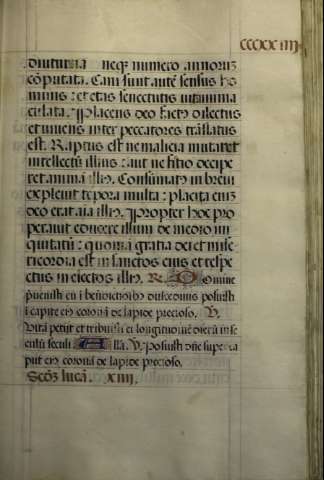 ccccxx iiij
diuturna neqʒ numero annorũ
cõputata. Cani sunt autẽ sensus ho
minis: et etas senectutis uita imma
culata. Placens deo factꝰ dilectus
et uiuens inter peccatores trãslatus
est. Raptus est ne malicia mutaret
intellectũ illius: aut ne fictio decipe
ret animã illiꝰ. Consũmatꝰ in breui
expleuit tẽpora multa: placita eniʒ
deo erat aĩa illiꝰ. Propter hoc pro
perauit educere illum de medio ini
quitatũ: quoniã gratia dei et mise
ricordia est in sanctos eius et respe
ctus in electos illiꝰ. R. Domine
p̃uenisti eũ ĩ benedictiõib; dulcedinis posuisti
ĩ capite eiꝰ coronã de lapide precioso. V.
Vitã petiit et tribuisti ei longitudinẽ dierũ in se
culũ seculi. Alla. V. Posuisti dñe super ca
put eiꝰ coronã de lapide precioso.
Scd̃ʒ lucã. xiiij.